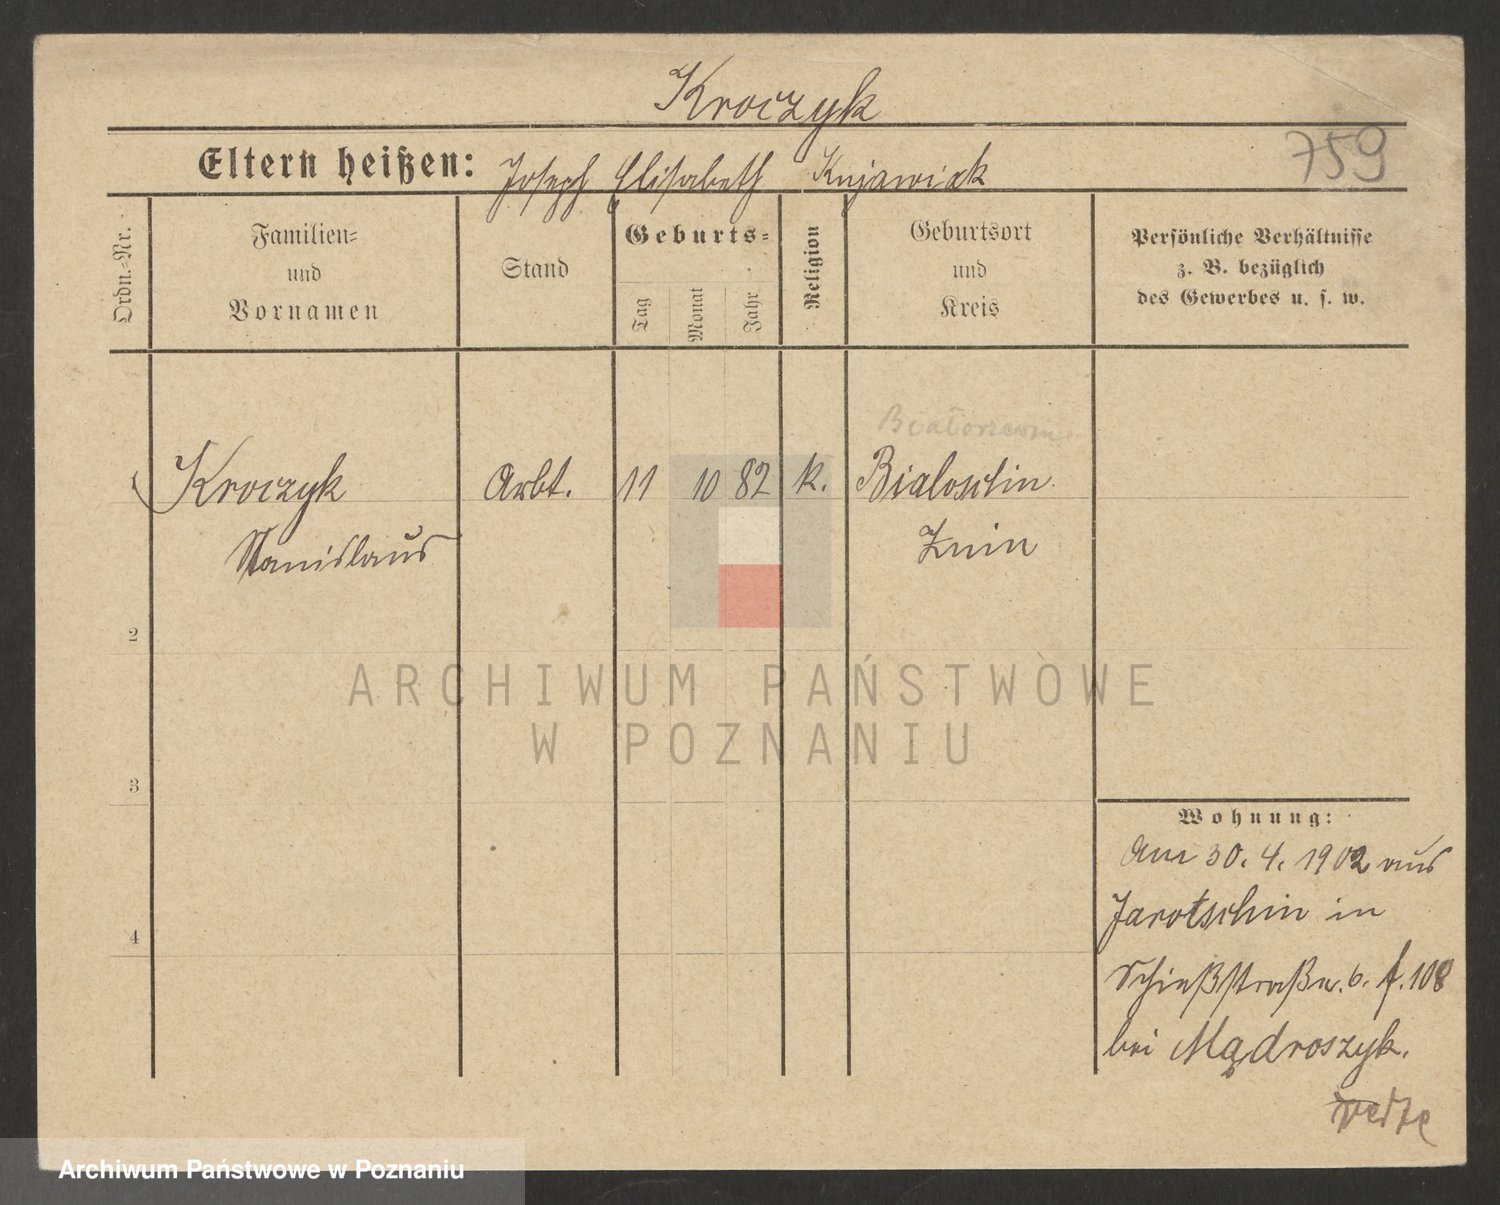 Kroczyk
759
Eltern heißen: Joseph Elisabeth Kujawiak
Ordn.-Nr.
Familien-
und
Vornamen
Stand
Geburts-
Tag
Monat
Jahr
Religion
Geburtsort
und
Kreis
Persönliche Verhältnisse
z. B. bezüglich
des Gewerbes u. s. w.
Kroczyk Arbt. 11 10 82 k. Bialoschin
Stanislaus Znin
2
3
4
Wohnung:
Am 30. 4. 1902 aus
Jarotschin in
Schießstraße. 6. f. 108
bei Mądroszyk.
ARCHIWUM PAŃSTWOWE
W POZNANIU
Archiwum Państwowe w Poznaniu